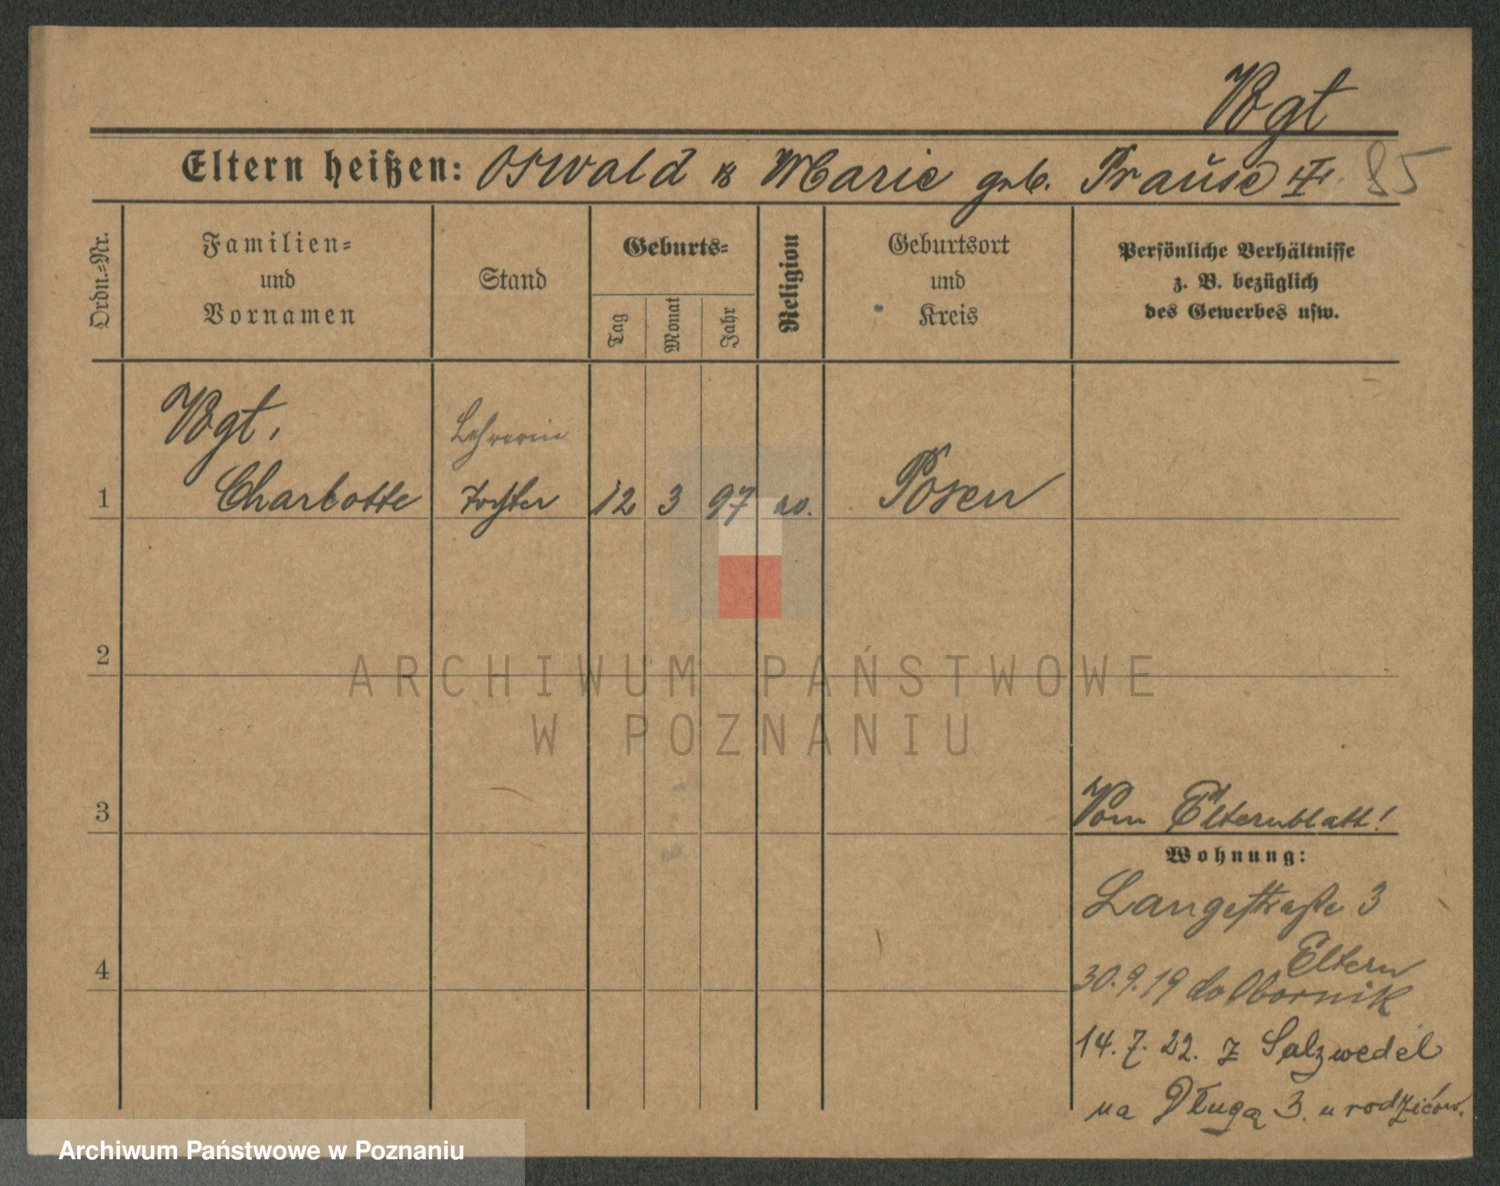 Vogt
Eltern heißen: Oswald & Marie geb. Trause 85
Ordn.-Nr.
Familien-
und
Vornamen
Stand
Geburts-
Tag
Monat
Jahr
Religion
Geburtsort
und
Kreis
Persönliche Verhältnisse
z. B. bezüglich
des Gewerbes usw.
Vogt,
Lehrerin
1 Charlotte Tochter 12 3 97 ev. Posen
2
3
Vom Elternblatt!
Wohnung:
Langestraße 3
Eltern
4
30.9.19 do Obornik
14.7.22. z Salzwedel
na Długą 3. u rodziców.
ARCHIWUM PAŃSTWOWE
W POZNANIU
Archiwum Państwowe w Poznaniu